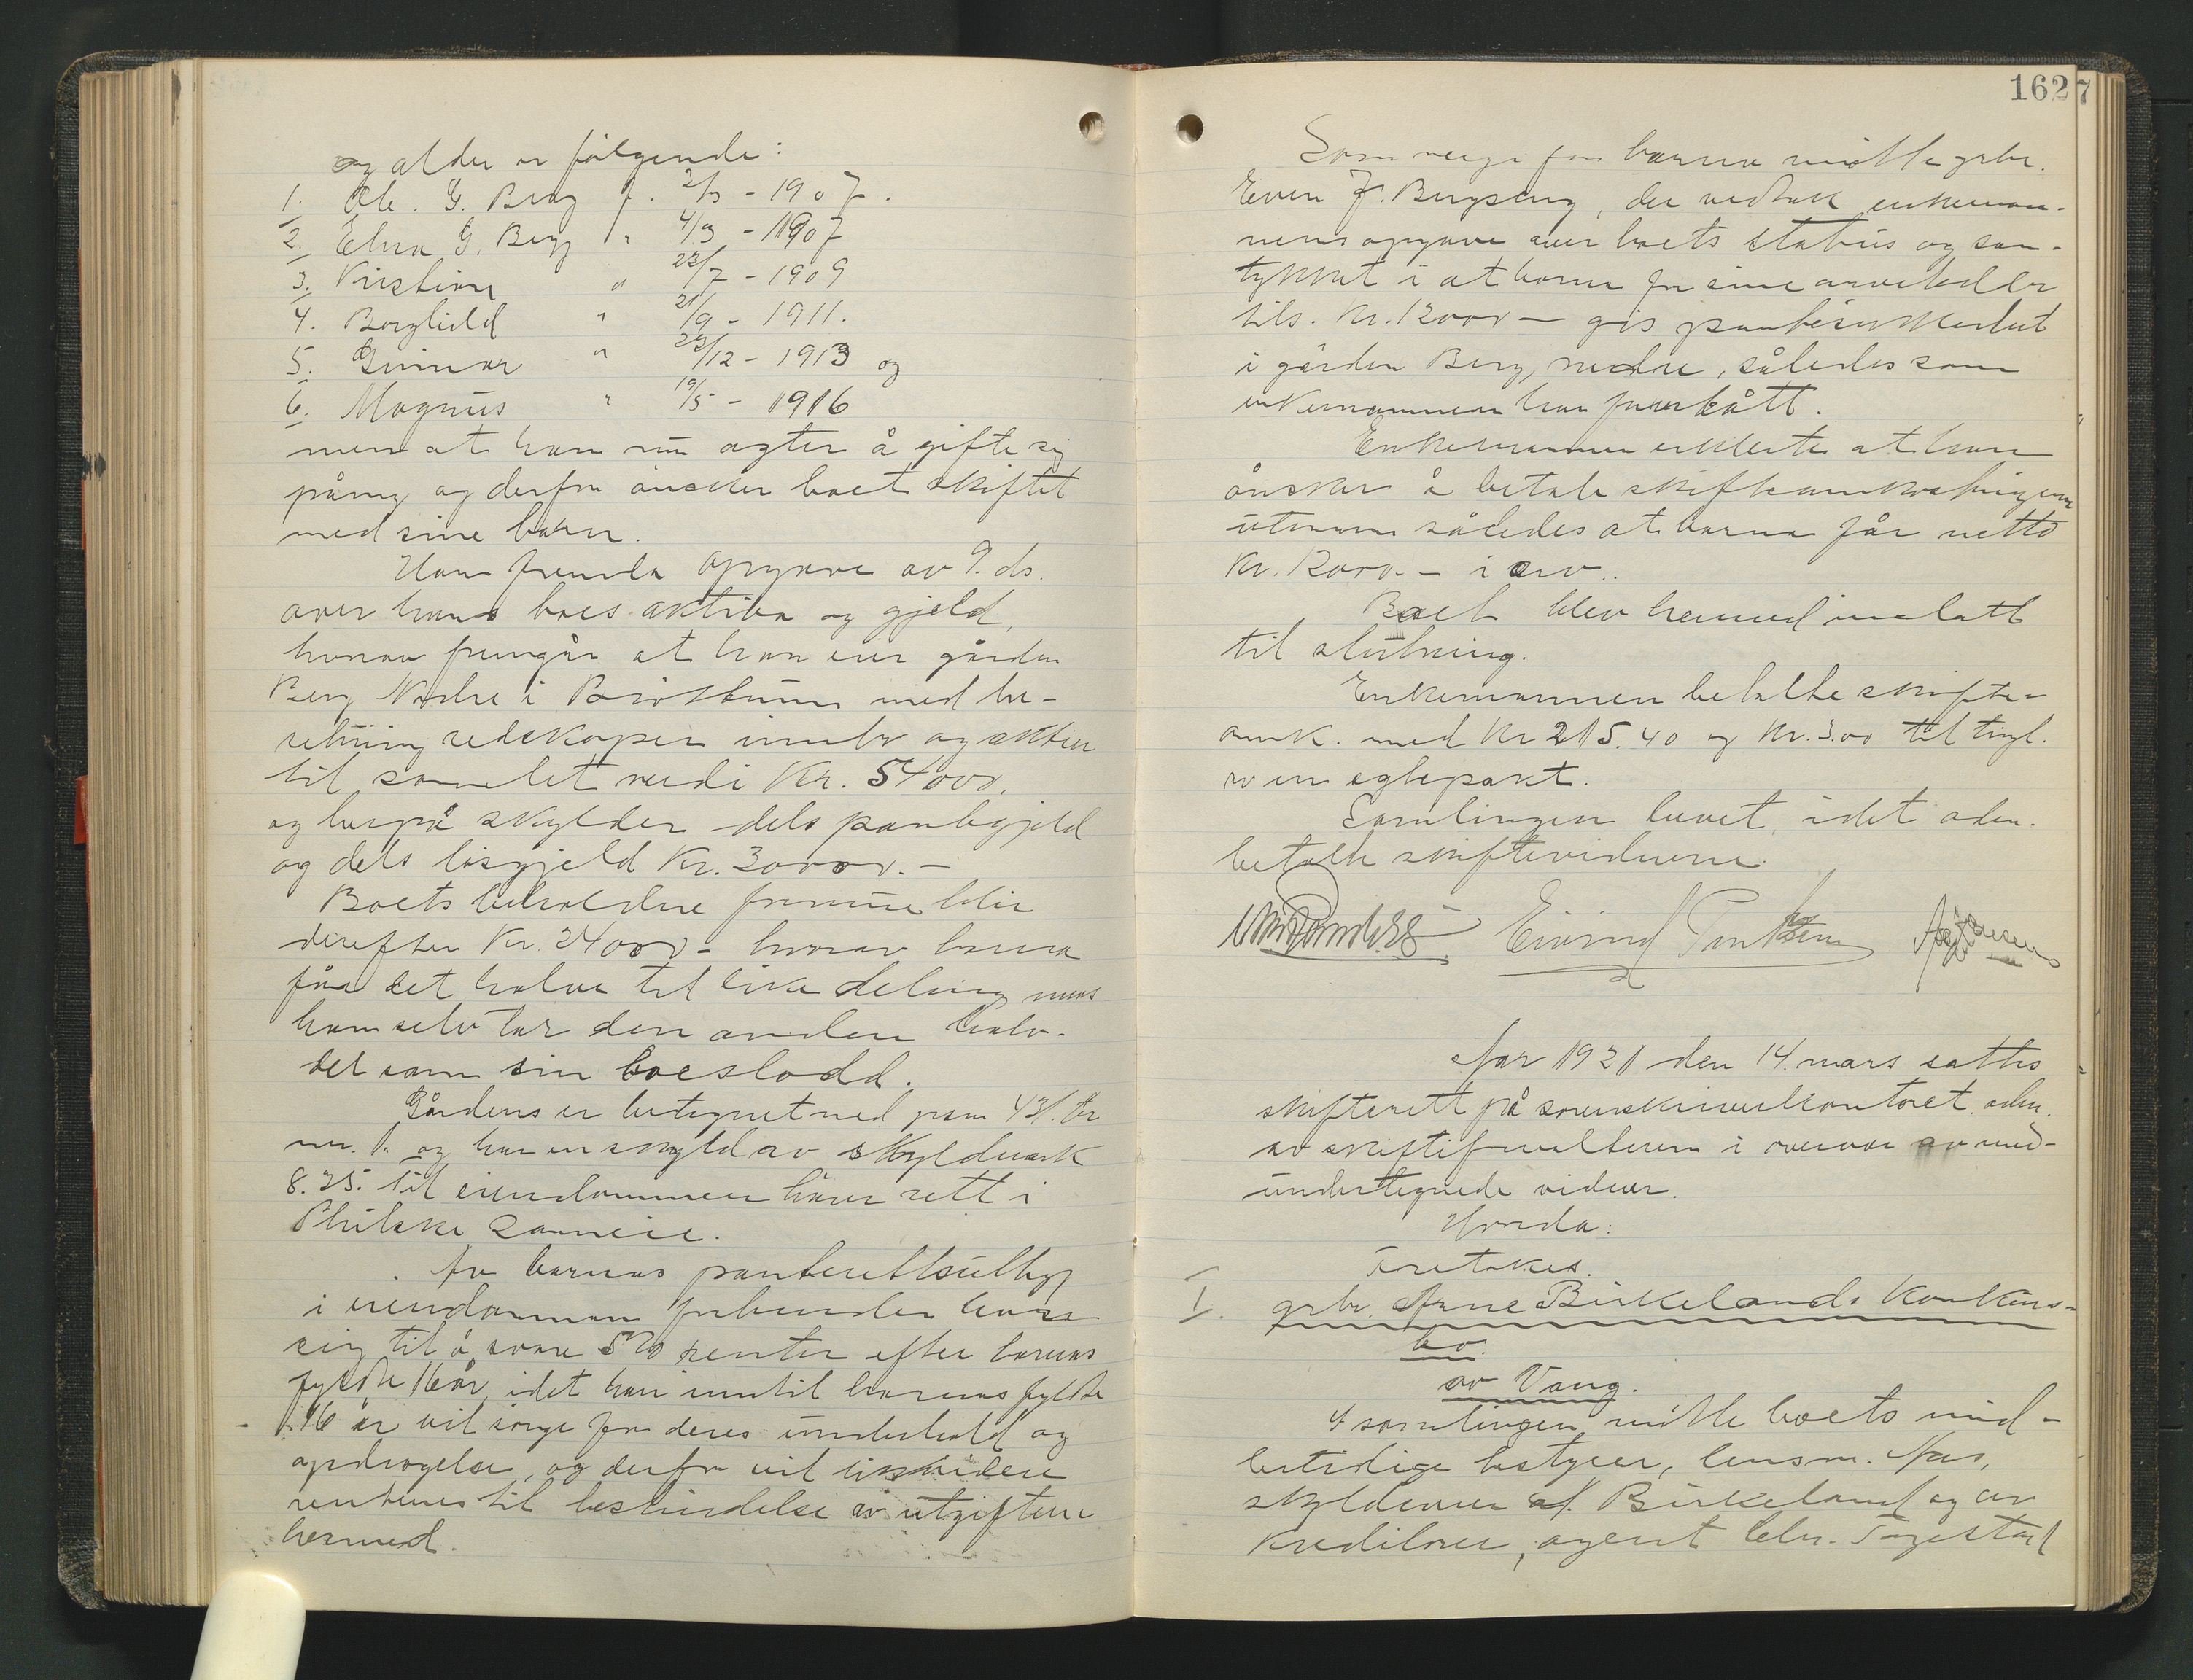 og alder er følgende:
1. Ole. G. Berg f. 2/3 - 1907.
2. Elna G. Berg " 4/3 - 1907
3. Kristian " 23/7 - 1909
4. Borghild " 21/9 - 1911.
5. Gunnar " 23/12 - 1913 og
6. Magnus " 19/5 - 1916
men at han nu agter å gifte sig
påny og derfor ønsker boet skiftet
med sine barn.
Han fremla opgave av 9. ds.
over hans boes aktiva og gjeld,
hvorav fremgår at han eier gården
Berg Nedre i med be-
setning redskaper innbo og aktier
til samlet verdi Kr. 54000.
og herpå skylder dels pantegjeld
og dels løsgjeld Kr. 30000.-
Boets beholdne formue blir
derefter Kr. 24000- hvorav barna
får det halve til like deling mens
han selv tar den anden halv-
del som sin boeslodd.
Gårdens er betegnet med gnr 431. br
nr. 1. og har en skyld av skyldmark
8.25. til eiendommen hører rett i
sameie.
For barnas panterettsutlegg
i eiendommen forbinder han
sig til å svare 5% renter efter barnas
fyldte 16 år, idet han inntil barnas fyldte
16 år vil sørge for deres underhold og
opdragelse, og derfor vil
rentenes til bestridelse av utgiftene
hermed.
1627
Som verge for barna møtte grbr.
Even J. Bergseng, der vedtok enkeman-
nens opgave over boets status og sam-
tykket i at barna for sine arvelodder
tils. Kr. 12000- gis pantesikkerhet
i gården Berg, nedre, således som
enkemannen har foreslått.
Enkemannen erklærte at han
ønsker å betale skifteomkostningene
utenom således at barna får netto
Kr. 12000.- i arv.
Boet blev hermed innlatt
til slutning.
Enkemannen betalte skifte-
omk. med Kr 215.40 og Kr. 3.00 til tingl.
av en egtepakt.
Samlingen hevet, idet adm.
betalte skiftevidnene.
Eivind
År 1921 den 14. mars sattes
skifterett på sorenskriverkontoret adm.
av skifteforvalteren i overvær av med-
undertegnede vidner.
Hvorda:
Foretokes.
I. grbr. Arne Birkelands Konkurs-
bo.
av Vang.
I samlingen møtte boets mid-
lertidige bestyrer, lensm. Aas,
skyldneren A. Birkeland og av
kreditorer, agent Chr. Tagestad